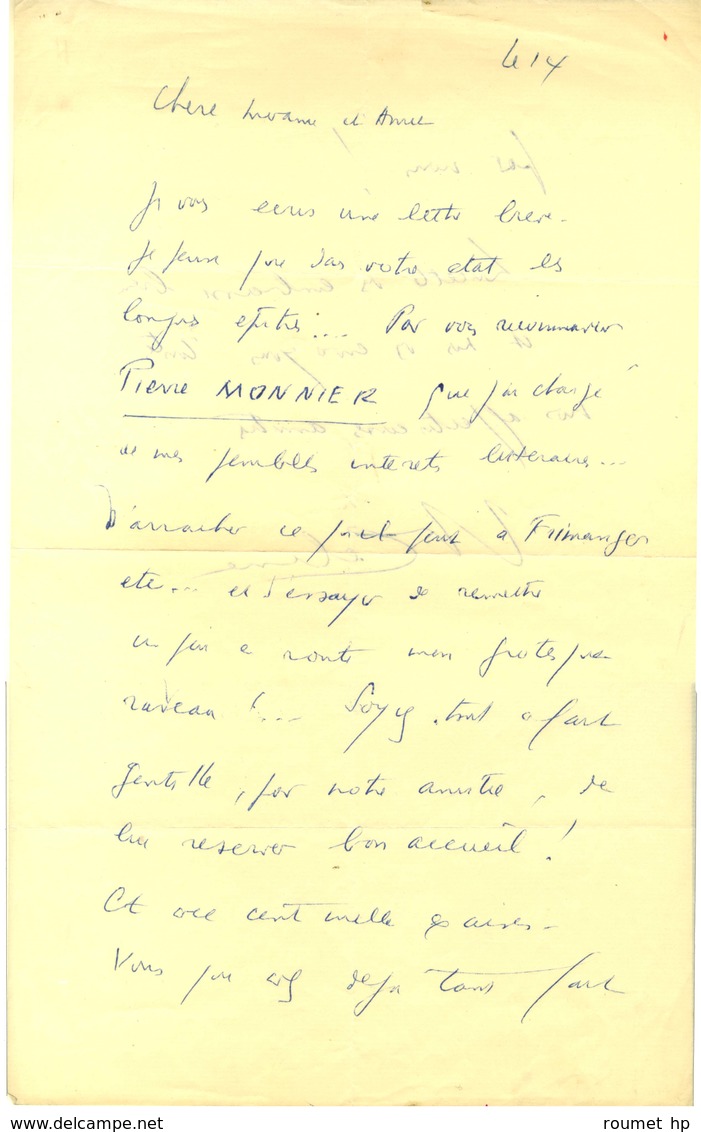 Le 14
Chère Madame et Amie
Je vous écris une lettre brève.
Je pense que dans votre état les
longues épîtres.... Par vous recommander
Pierre MONNIER que j'ai chargé
de mes pénibles intérets littéraires...
D'arracher ce qu'il peut à
etc... et d'essayer de remettre
un peu a route mon grotesque
! ... Soyez tout a fait
gentille, par notre amitié, de
lui reserver bon accueil !
Et avec cent mille excuses.
Vous que avez déjà tant fait
www.delcampe.net
roumet hp